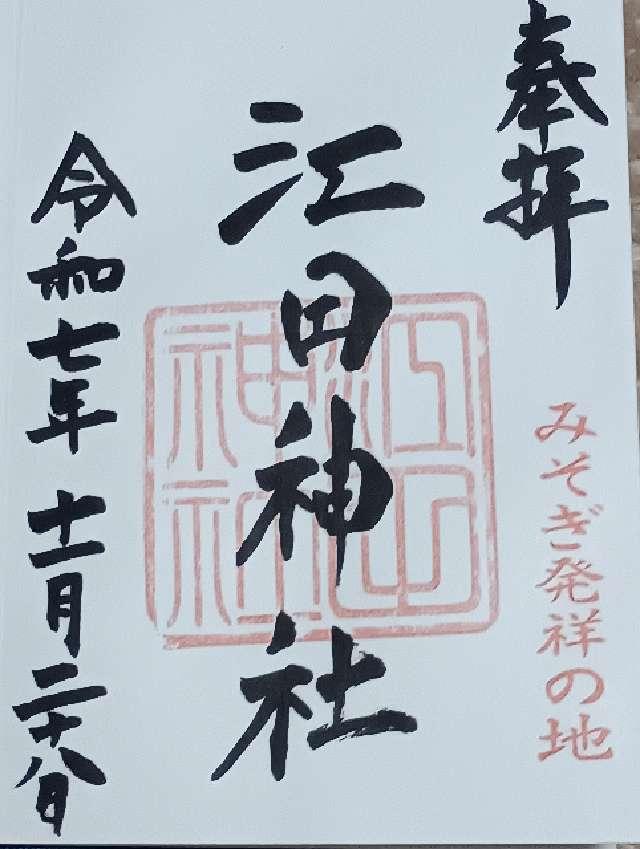 奉拝
みそぎ発祥の地
江田神社
江田神社
令和七年十一月二十八日